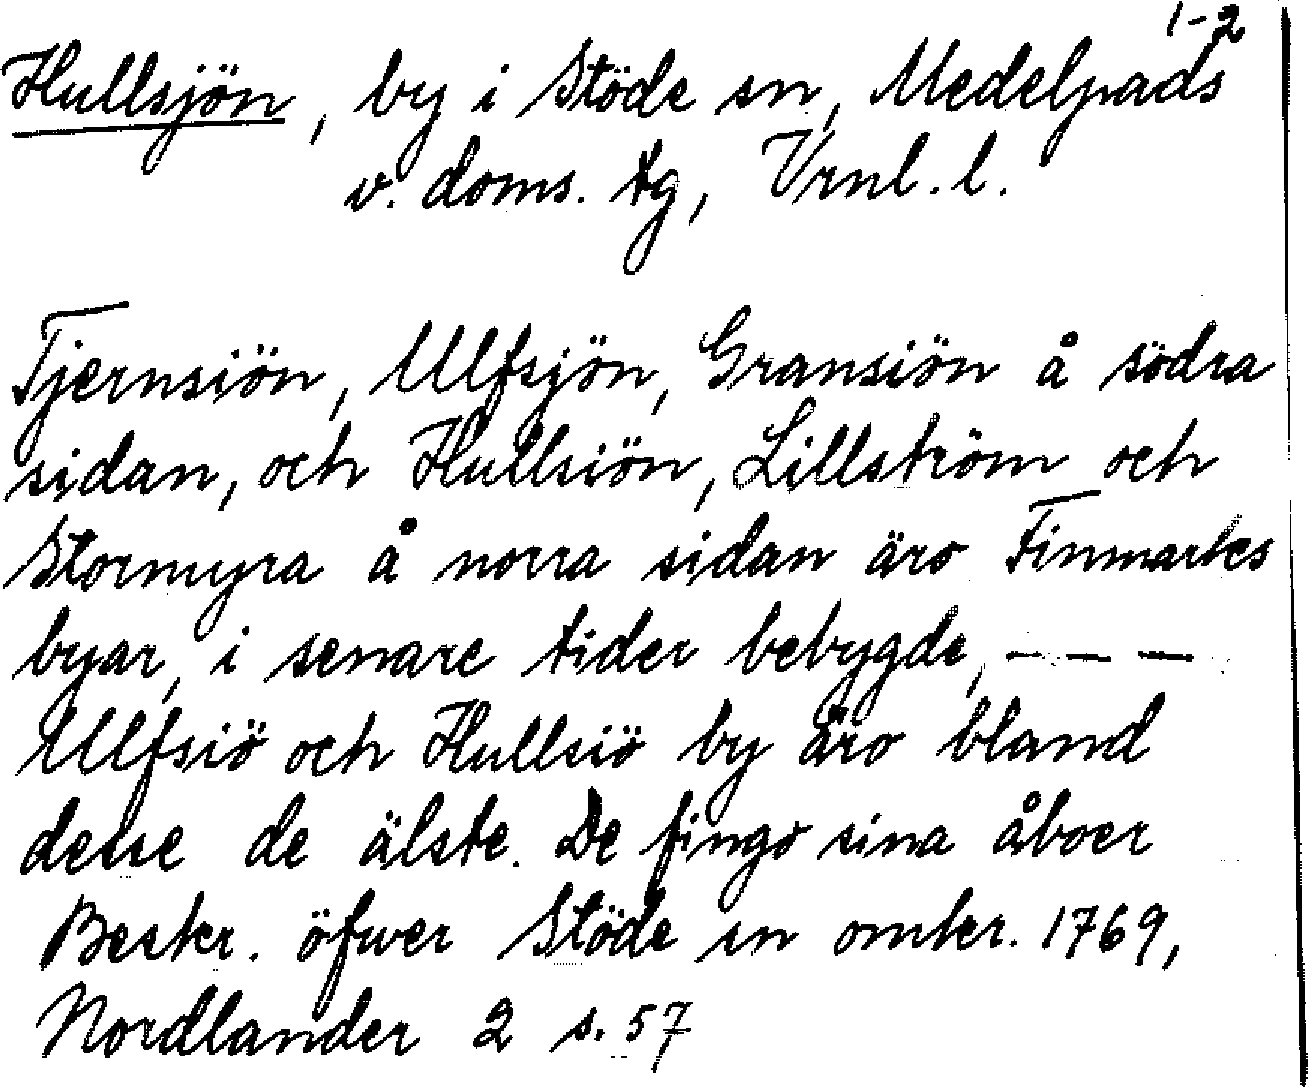 1-2
Hullsjön, by i Stöde sn, Medelpads
v. doms. tg, Vrnl. l.
Tjernsiön, Ulfsjön, Gransiön å södra
sidan, och Hullsiön, Lillström och
Stormyra å norra sidan äro Finmarks
byar, i senare tider bebygde, — — —
Ulfsiö och Hullsiö by äro bland
desse de älste. De fingo sina åboer
Beskr. öfwer Stöde sn omkr. 1769,
Nordlander 2 s. 57